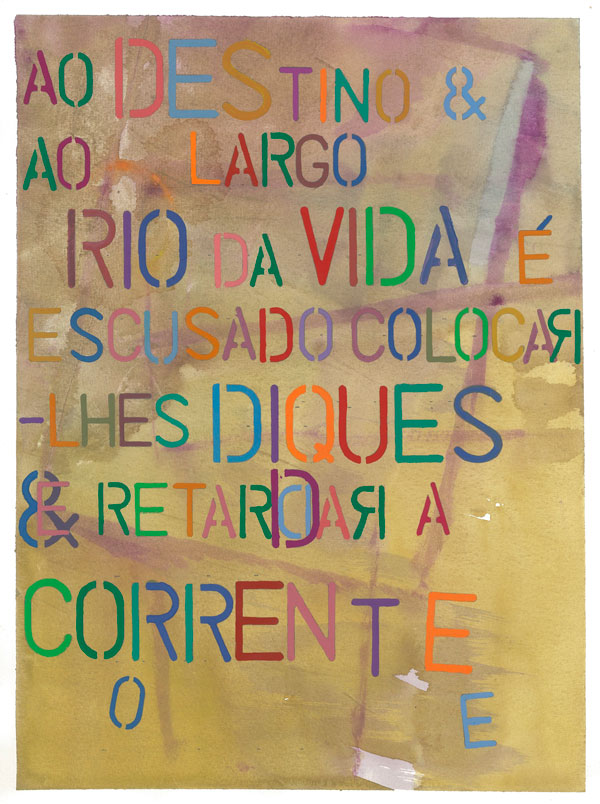 AO DESTINO &
AO LARGO
RIO DA VIDA É
ESCUSADO COLOCAR
-LHES DIQUES
& E RETARDAR A
CORRENTE
O E